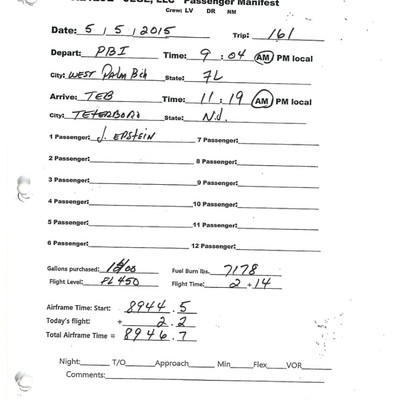 JEGE, LLC Passenger Manifest
Crew: LV DR NM
Date: 5 / 5 / 2015 Trip: 161
Depart: PBI Time: 9 : 04 AM PM local
City: WEST PALM BCH State: FL
Arrive: TEB Time: 11 : 19 AM PM local
City: TETERBORO State: N.J.
1 Passenger: J. EPSTEIN 7 Passenger:
2 Passenger: 8 Passenger:
3 Passenger: 9 Passenger:
4 Passenger: 10 Passenger:
5 Passenger: 11 Passenger:
6 Passenger: 12 Passenger:
Gallons purchased: Fuel Burn lbs. 7178
Flight Level: FL450 Flight Time: 2 + 14
Airframe Time: Start: 8944.5
Today's flight: + 2.2
Total Airframe Time = 8946.7
Night: T/O Approach Min Flex VOR
Comments: